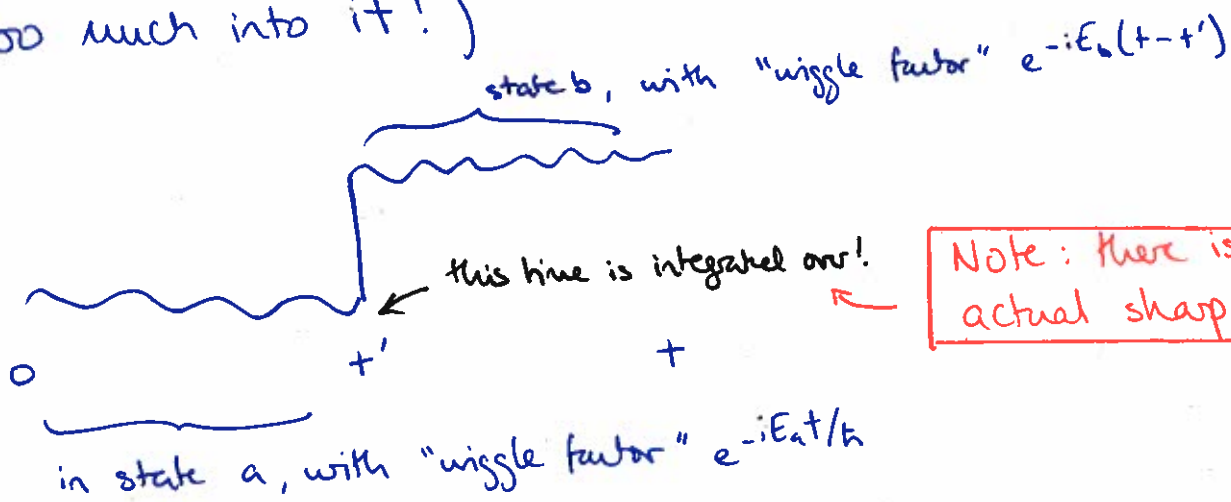 too much into it!)
state b, with "wiggle factor" e^{-iE_b(t-t')}
this time is integrated over!
Note: there is
actual sharp
0 t' t
in state a, with "wiggle factor" e^{-iE_a t/ħ}